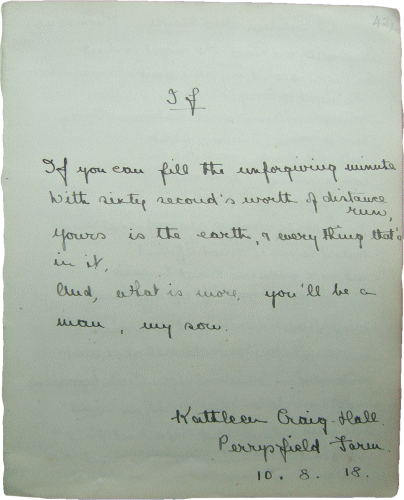 If
If you can fill the unforgiving minute
With sixty second's worth of distance
run,
Yours is the earth, & everything that's
in it,
And, what is more, you'll be a
man, my son.
Kathleen Craig-Hall.
Perrysfield Farm.
10. 8. 18.